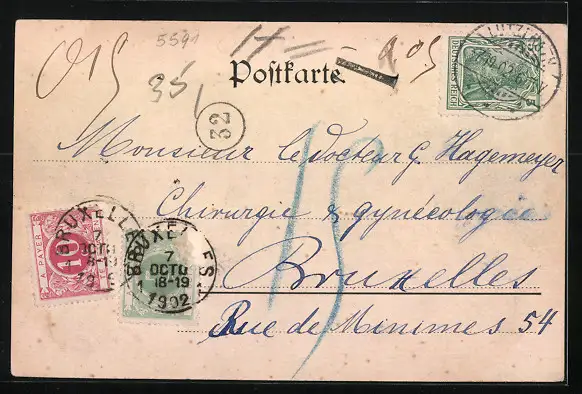 5591
Postkarte.
35
32
15
Monsieur le docteur G. Hagemeyer
Chirurgie & gynécologie
Bruxelles
Rue de Minimes 54
DEUTSCHES REICH
5
A PAYER
10
BRUXELLES
OCTO
18-19
BRUXELLES
7
OCTO
18-19
1902